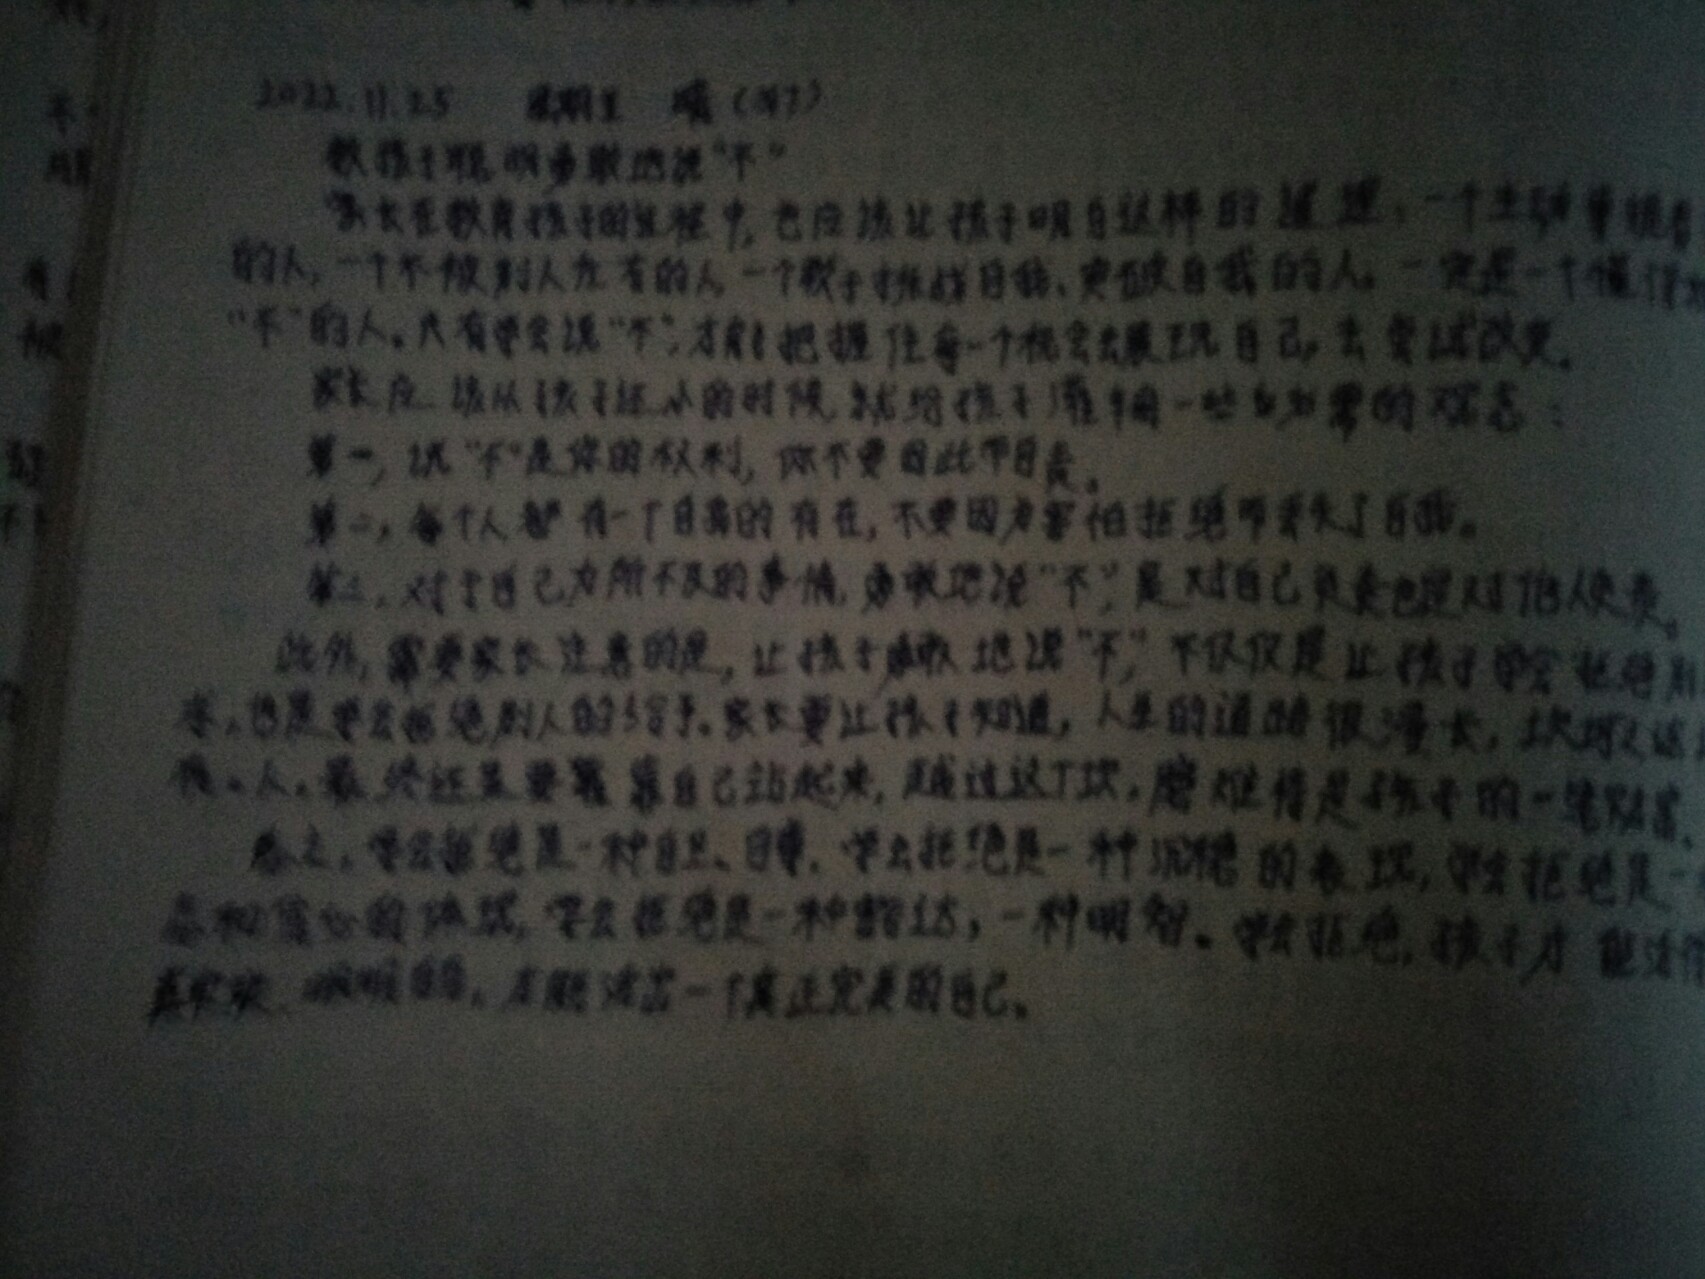 2022.11.25 星期五 晴
教孩子聪明勇敢地说“不”
家长在教育孩子的过程中,也应该让孩子明白这样的道理:一个
的人,一个不依附人左右的人,一个敢于挑战自我、突破自我的人,一定是一个懂得
“不”的人。只有学会说“不”,才能把握住每一个机会去展现自己,去尝试改变。
家长应该从孩子还小的时候,就给孩子灌输一些必需的观念:
第一,说“不”是你的权利,你不要因此而自责。
第二,每个人都有一个自我的存在,不要因为害怕拒绝而丧失了自我。
第三,对于自己力所不及的事情,勇敢地说“不”,是对自己负责也是对他人负责。
此外,需要家长注意的是,让孩子勇敢地说“不”,不仅仅是让孩子学会拒绝别
求,也是学会拒绝别人的给予。家长要让孩子知道,人生的道路很漫长,坎坷
人,最终还是要靠自己站起来,越过这个坎,磨难将是孩子的一笔财富。
总之,学会拒绝是一种自卫、自尊,学会拒绝是一种沉稳的表现,学会拒绝是一
的体现,学会拒绝是一种豁达,一种明智。学会拒绝,孩子才能活得
真真实实、明明白白,才能活出一个真正完美的自己。